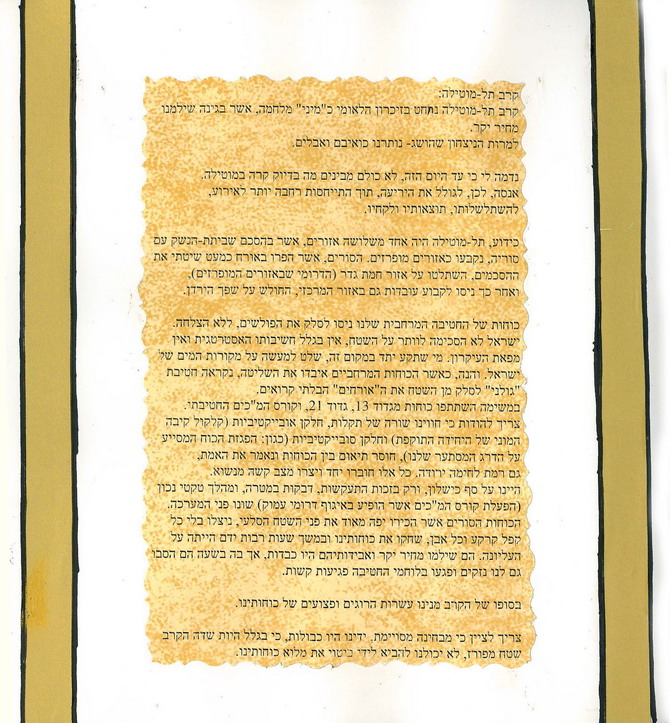 קרב תל-מוטילה:
קרב תל-מוטילה נחקט בזיכרון הלאומי כ"מיני" מלחמה, אשר בגינה שילמנו
מחיר יקר.
למרות הניצחון שהושג- נותרנו כואבים ואבלים.
נדמה לי כי עד היום הזה, לא כולם מבינים מה בדיוק קרה במוטילה.
אנסה, לכן, לגולל את היריעה, תוך התייחסות רחבה יותר לאירוע,
להשתלשלותו, תוצאותיו ולקחיו.
כידוע, תל-מוטילה היה אחד משלושה אזורים, אשר בהסכם שביתת-הנשק עם
סוריה, נקבעו כאזורים מופרזים. הסורים, אשר הפרו באורח כמעט שיטתי את
ההסכמים, השתלטו על אזור חמת גדר (הדרומי שבאזורים המופרזים),
ואחר כך ניסו לקבוע עובדות גם באזור המרכזי, החולש על שפך הירדן.
כוחות של החטיבה המרחבית שלנו ניסו לסלק את הפולשים, ללא הצלחה.
ישראל לא הסכימה לוותר על השטח, אין בגלל חשיבותו האסטרטגית ואין
מפאת העיקרון. מי שתקע יתד במקום זה, שלט למעשה על מקורות המים של
ישראל. והנה, כאשר הכוחות המרחביים איבדו את השליטה, נקראה חטיבת
"גולני" לסלק מן השטח את ה"אורחים" הבלתי קרואים.
במשימה השתתפו כוחות מגדוד 13, גדוד 21, וקורס המ"כים החטיבתי.
צריך להודות כי חווינו שורה של תקלות, חלקן אובייקטיביות (קלקול קיבה
המוני של היחידה התוקפת) וחלקן סובייקטיביות (כגון: הפגזת הכוח המסייע
על הדרג המסתער שלנו), חוסר תיאום בין הכוחות ונאמר את האמת,
גם רמת לחימה ירודה. כל אלו חוברו יחד ויצרו מצב קשה מנשוא.
היינו על סף כישלון, ורק בזכות התעקשות, דבקות במטרה, ומהלך טקטי נכון
(הפעלת קורס המ"כים אשר הופיע באיגוף דרומי עמוק) שונו פני המערכה.
הכוחות הסורים אשר הכירו יפה מאוד את פני השטח הסלעי, ניצלו בלי כל
קפל קרקע וכל אבן, שחקו את כוחותינו ובמשך שעות רבות ידם הייתה על
העליונה. הם שילמו מחיר יקר ואבידותיהם היו כבדות, אך בה בשעה הם הסבו
גם לנו נזקים ופגעו בלוחמי החטיבה פגיעות קשות.
בסופו של הקרב מנינו עשרות הרוגים ופצועים של כוחותינו.
צריך לציין כי מבחינה מסויימת, ידינו היו כבולות, כי בגלל היות שדה הקרב
שטח מפורז, לא יכולנו להביא לידי ביטוי את מלוא כוחותינו.